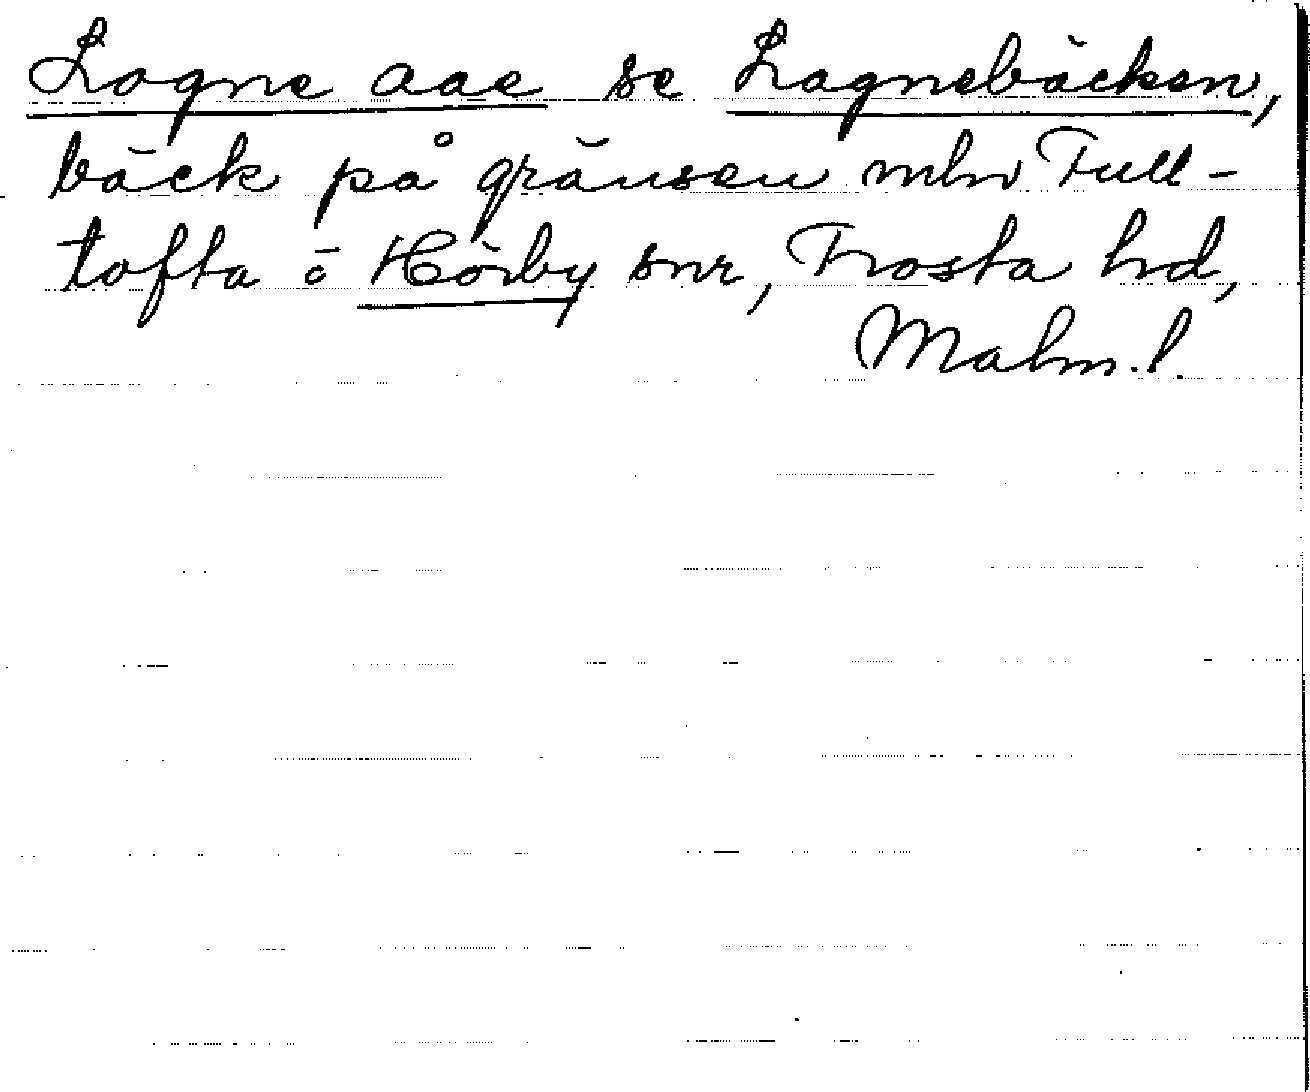 Logne aae se Lagnebäcken,
bäck på gränsen mln Full-
tofta o Hörby snr, Frosta hd,
Malm. l.